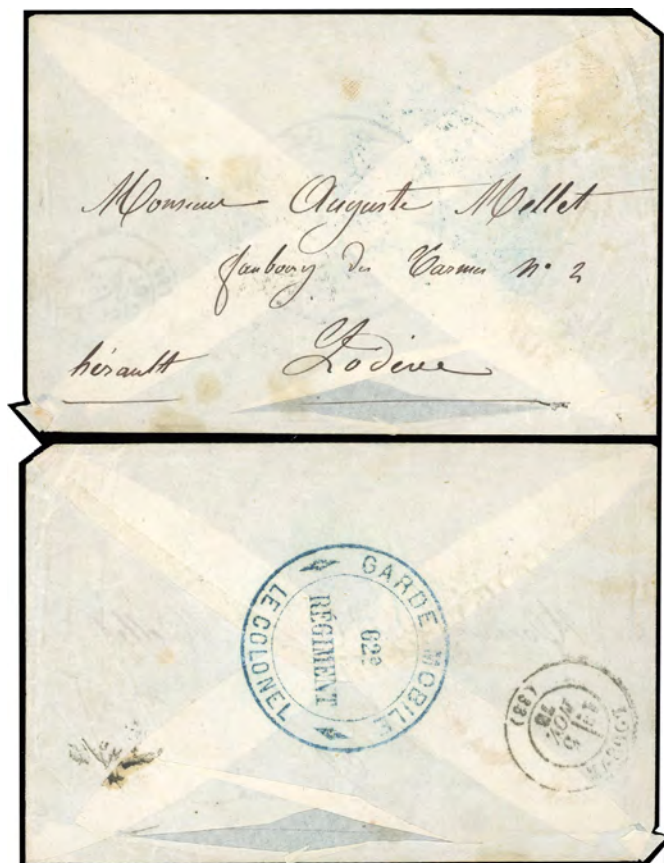 Monsieur Auguste Mellet
faubourg des Carmes n° 2
hérault Lodève
GARDE MOBILE
62e
RÉGIMENT
LE COLONEL
NOV.
70
(33)